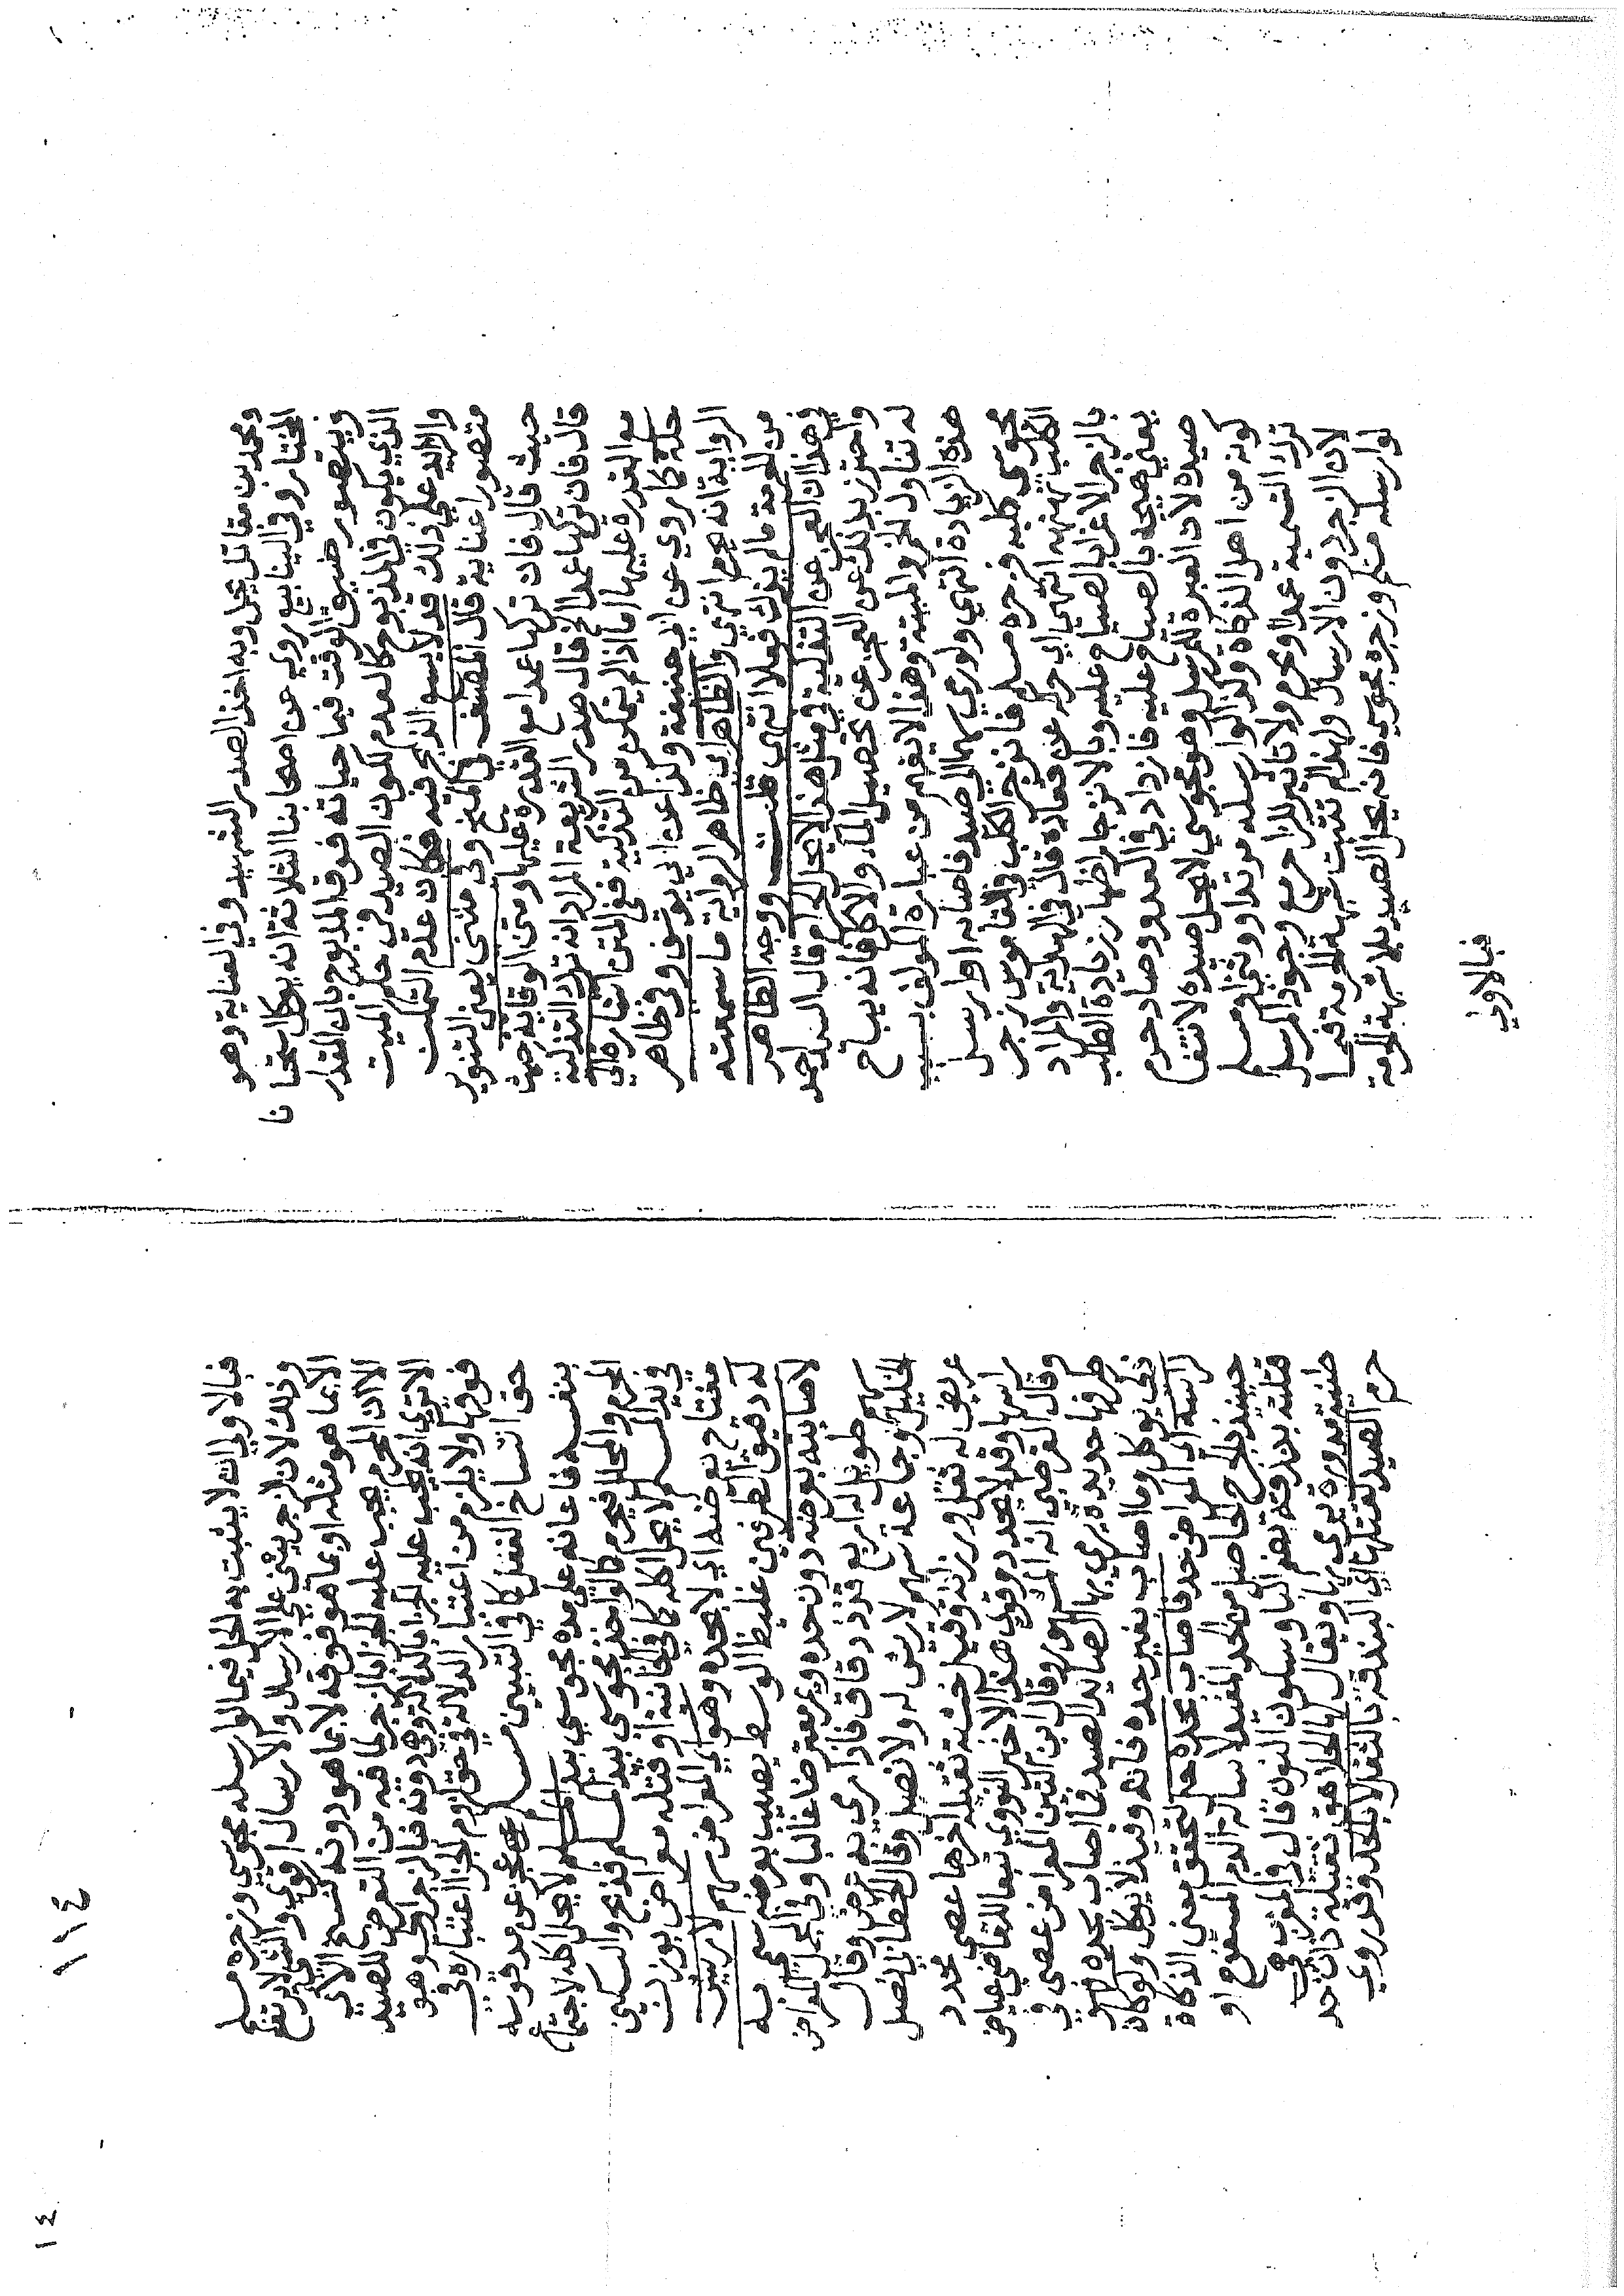 ومحمد بن مقاتل يحل وبه اخذ الصدر الشهيد وفي العناية وهو
المختار وفي الينابيع روي عن اصحابنا الثلاثة انه يوكل استحسانا
ويتصور ضيق الوقت فيما حياته فوق المذبوح بان القدر
الذي يكون في المذبوح كالعدم لكون الصيد في حكم الميت
والزايد علي ذلك قد لا يسع الذبح فيه فكان عدم التمكن
متصورا عناية قال المصنف في المنح وفي متني يعني التنوير
حيث قال فان تركها عمدا مع القدرة عليها ومتن الوقاية حيث
قال فان تركها عمدا الخ قال صدر الشريعة المراد انه ترك التذكية
مع القدرة عليها اما اذا لم يتمكن من التذكية ففي المتن اشارة الي
حله كما روي عن ابي حنيفة وكذا عن ابي يوسف وفي ظاهر
الرواية انه يحرم انتهي والظاهر ان ظاهر الرواية ما سمعته
من الحرمة مالم يذك فعلا انتهى قلت ووجه الظاهر
في هذا ان العجز عن التذكية في مثل هذا لا يحل الحرام قال السيد احمد
واحترز بذلك عن العجز عن تحصيل الماء والاكل فانه يباح
له تناول الخمر والميتة وهذا لا يفهم من عبارة المولف بسبب
هذه الزيادة انتهي ولو رمي سهما الي صيد فاصابه او ارسل
مجوسي كلبه فزجره مسلم فانزجر الكلب وفي القاموس زجر
الكلب نهنهه انتهي اي قال في الهداية والمراد
بالزجر الاغرا بالصياح عليه وبالانزجار اظهار زيادة الطلب
يعني هيجه بالصياح عليه فازداد في العدو وصاد حرم
صيده لان العبرة للمرسل وهو مجوسي لا يحل صيده لانتفا
كونه من اهل الذكاة وكذا لو ارسله مرتد او وثني او مسلم
ترك التسمية عمدا او محرم ولا تاثير للزاجر مع وجود المرسل
لان الزجر دون الارسال ولهذا لم تثبت به شبهة الحرمة فيما
لو ارسله مسلم وزجره مجوسي فانه يحل الصيد بلا شبهة الحرمة
فبالاولي
١١٤
١٤
فبالاولي ان لا يثبت به الحل فيما لو ارسله مجوسي وزجره مسلم
وذلك لان الزجر يبتني علي الارسال والارسال اقوي والشي لا يرتفع
الا بما هو مثله او بما هو فوقه لا بما هو دونه كنسخ الآي
الا ان المحرم يجب عليه الجزا بالزجر لما فيه من التعرض للصيد
الا تري انه يجب عليه الجزا بالدلالة وهي دونه فبالزجر اولي وهو
فوقها ولا يلزم من اعتبار الدلالة في حق لزوم الجزا اعتباره في
حق انتساخ الفعل كما في التبيين مسلم عجز عن مد قوسه
بنفسه فاعانه علي مده مجوسي بيد المسلم لا يحل اكله لاجتماع
المحرم والمحلل فيحرم كما لو اخذ مجوسي بيد المسلم فذبح والسكين
في يد المسلم لا يحل اكله كما في الخانية او قتله معراض بوزن
مفتاح بعرضه اي لا بحده وهو اي المعراض سهم لا ريش
له دقيق الطرفين غليظ الوسط يصيب بعرضه سمي به
لاصابته بعرضه دون حده ويمر معترضا غالبا وفي المجمل المعراض
سهم طويل له اربع قذذ دقاق فاذا رمي به اعترض وقال
الخليل وجماعة سهم لا ريش له ولا نصل وقال الخطابي نصل
عريض له ثقل ورزانة وقيل خشبة ثقيلة اخرها عصي محدد
راسها وقد لا يحدد وقوي هذا الاخير النووي تبعا للقاضي عياض
وقال القرطبي انه المشهور وقال ابن التين المعراض عصي في
طرفها حديدة يرمي بها الصايد الصيد فما اصاب بحده فهو
ذكي يوكل وما اصاب بغير حده فانه وقيذ لا يوكل ولو كان
راسه اي المعراض حد فاصاب بحده حل لتحقق معني الذكاة
حينيذ بالجرح الحاصل من الحد المفيد لاسالة الدم المسفوح او
قتلته بندقة بضم البا وسكون النون قال في المغرب هي
طينة مدورة يرمي بها ويقال لها الجلاهق ثقيلة ذات حد
حرم الصيد لقتلها اي البندقة بالثقل لا بالحد وقد روي